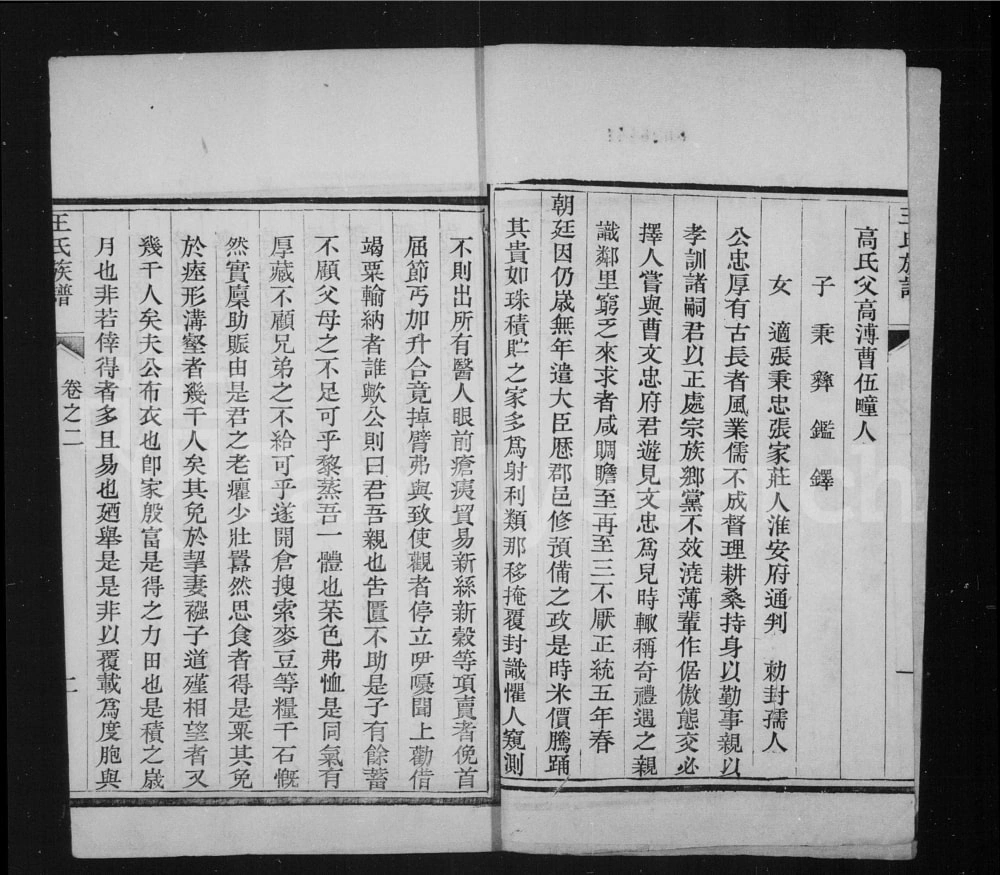 王氏族譜
高氏父高溥曹伍疃人
子秉彝鑑鐸
女　適張秉忠張家莊人淮安府通判　勅封孺人
公忠厚有古長者風業儒不成督理耕桑持身以勤事親以
孝訓諸嗣君以正處宗族鄉黨不效澆薄輩作倨傲態交必
擇人嘗與曹文忠府君遊見文忠爲兒時輙稱奇禮遇之親
識鄰里窮乏來求者咸賙贍至再至三不厭正統五年春
朝廷因仍歲無年遣大臣歷郡邑修預備之政是時米價騰踊
其貴如珠積貯之家多爲射利類那移掩覆封識懼人窺測
不則出所有醫人眼前瘡痍貿易新絲新穀等項賣者俛首
屈節丐加升合竟掉臂弗與致使觀者停立吁嗄聞上勸借
竭粟輸納者誰歟公則曰君吾親也吿匱不助是子有餘蓄
不顧父母之不足可乎黎蒸吾一體也菜色弗恤是同氣有
厚藏不顧兄弟之不給可乎遂開倉搜索麥豆等糧千石慨
然實廩助賑由是君之老癯少壯囂然思食者得是粟其免
於瘞形溝壑者幾千人矣其免於挈妻襁子道殣相望者又
幾千人矣夫公布衣也卽家殷富是得之力田也是積之歲
月也非若倖得者多且易也廼舉是是非以覆載爲度胞與
王氏族譜
卷之二
二